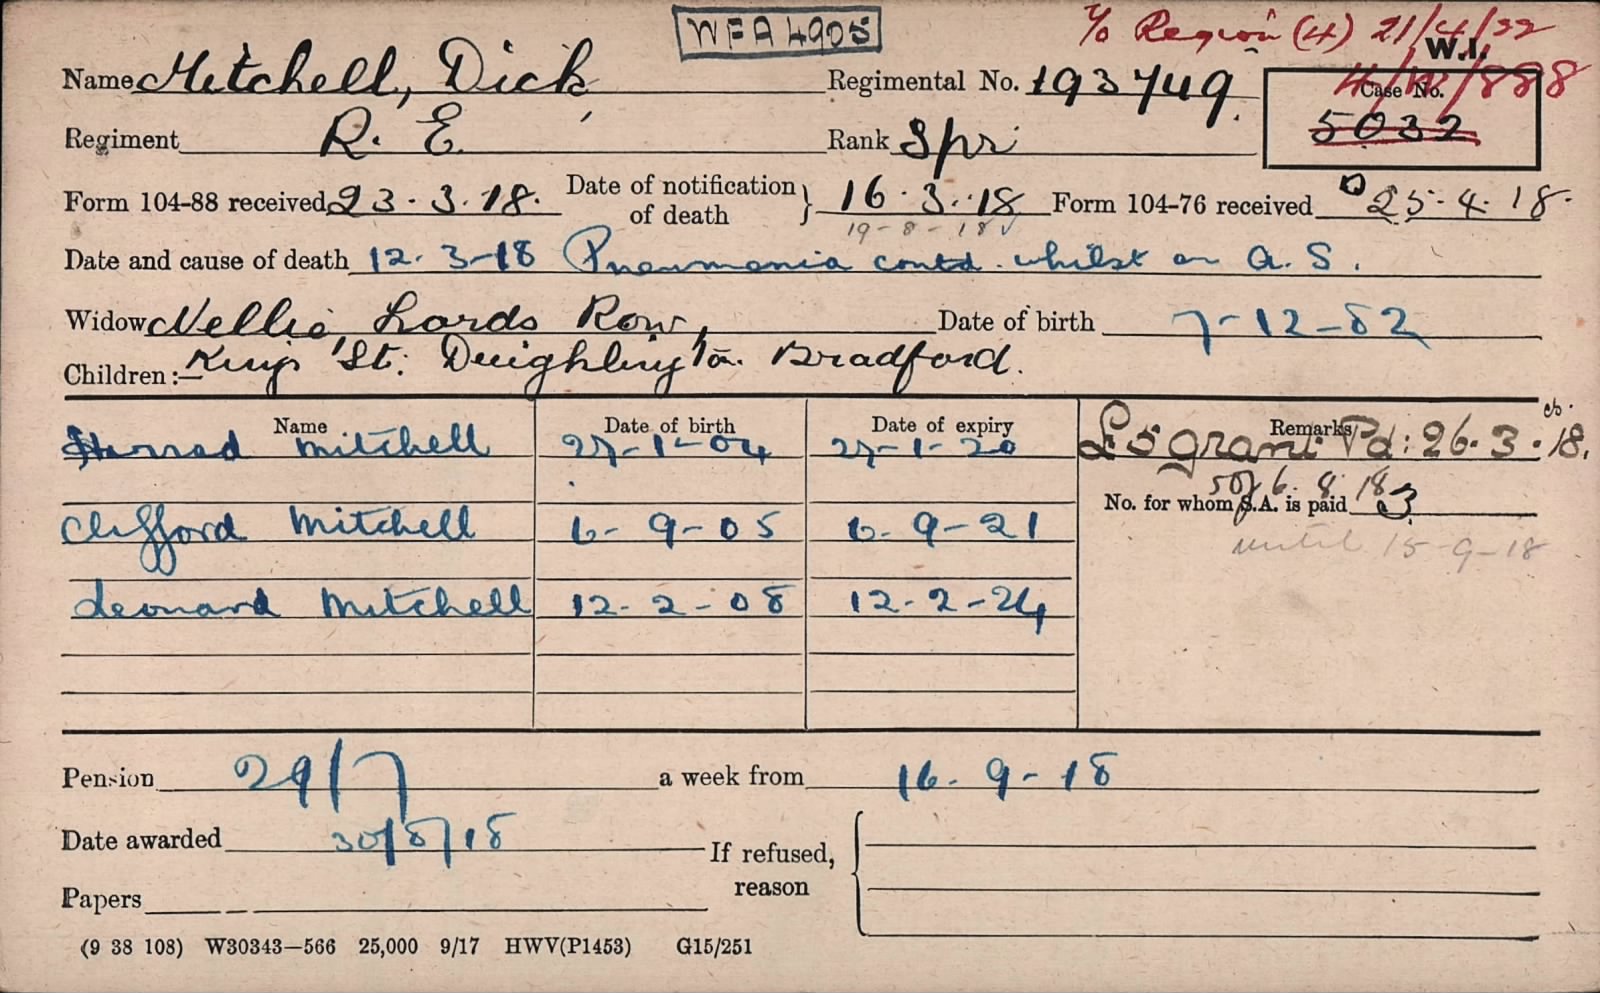 WFA 4905
T/o Region (4) 21/4/22
W.I.
Name Mitchell, Dick Regimental No. 193749.
Case No. 4/M/888
5032
Regiment R. E. Rank Spr
Form 104-88 received 23.3.18. Date of notification of death } 16.3.18 Form 104-76 received 25.4.18.
19-8-18
Date and cause of death 12.3-18 Pneumonia contd. whilst on A.S.
Widow Nellie, Lords Row, Date of birth 7-12-82
Children:— King St. Drighlington Bradford.
Name Date of birth Date of expiry Remarks
Harrad Mitchell 27-1-04 27-1-20 £5 grant Pd: 26.3.18.
50f 6.8.18
No. for whom S.A. is paid 3
Clifford Mitchell 6-9-05 6-9-21
until 15-9-18
Leonard Mitchell 12-2-08 12-2-24
Pension 29/7 a week from 16-9-18
Date awarded 30/8/18
If refused, reason
Papers
(9 38 108) W30343—566 25,000 9/17 HWV(P1453) G15/251